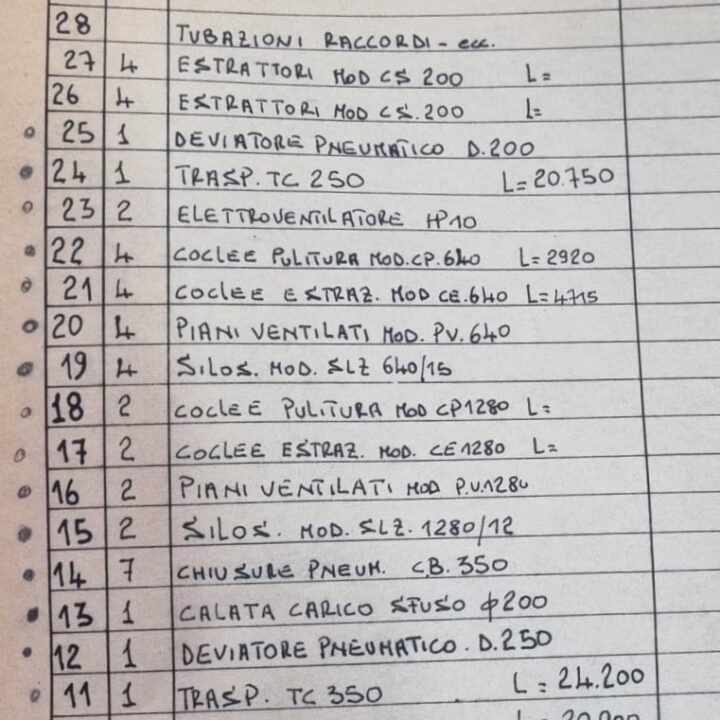 28 TUBAZIONI RACCORDI - ecc.
27 4 ESTRATTORI MOD CS 200 L=
26 4 ESTRATTORI MOD CS.200 L=
25 1 DEVIATORE PNEUMATICO D.200
24 1 TRASP. TC 250 L=20.750
23 2 ELETTROVENTILATORE HP10
22 4 COCLEE PULITURA MOD.CP.640 L=2920
21 4 COCLEE ESTRAZ. MOD CE.640 L=4715
20 4 PIANI VENTILATI MOD. PV.640
19 4 SILOS. MOD. SLZ 640/15
18 2 COCLEE PULITURA MOD CP1280 L=
17 2 COCLEE ESTRAZ. MOD. CE1280 L=
16 2 PIANI VENTILATI MOD P.V.1280
15 2 SILOS. MOD. SLZ. 1280/12
14 7 CHIUSURE PNEUM. C.B. 350
13 1 CALATA CARICO SFUSO φ200
12 1 DEVIATORE PNEUMATICO. D.250
11 1 TRASP. TC 350 L=24.200